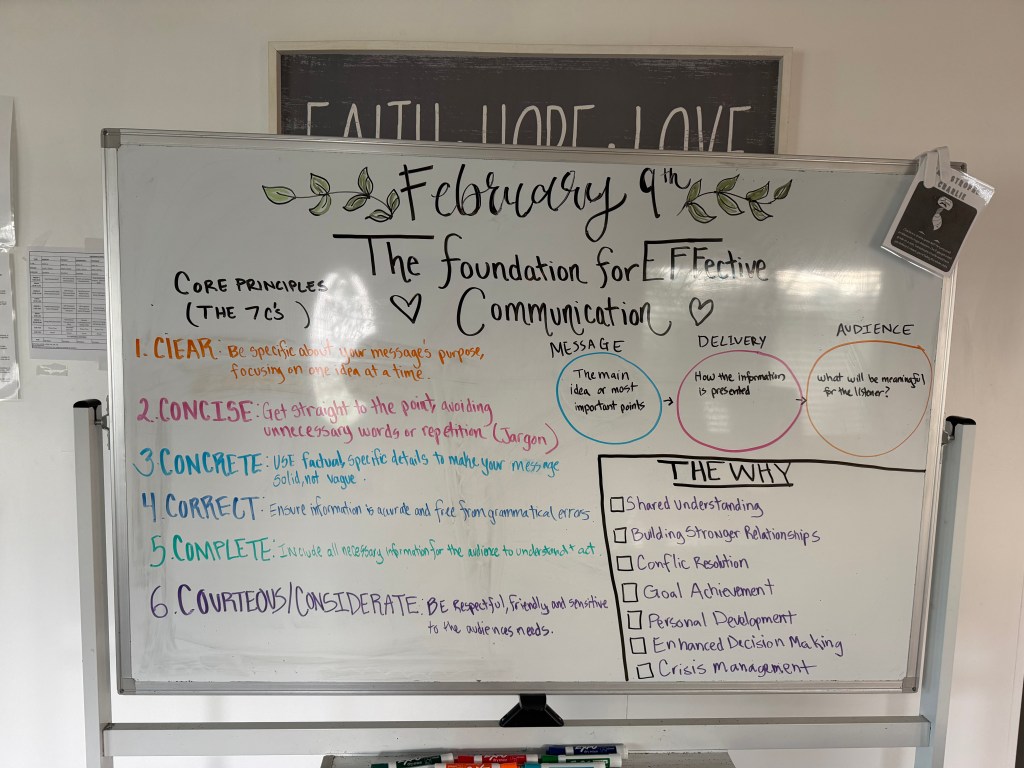 FAITH . HOPE . LOVE
February 9th
The foundation for EFFective
Communication
CORE PRINCIPLES
(THE 7 C'S )
1. ClEAR: Be specific about your message's purpose,
focusing on one idea at a time.
2. CONCISE: Get straight to the point, avoiding
unnecessary words or repetition (Jargon)
3 CONCRETE: USE factual, specific details to make your message
solid, not vague.
4. CORRECT: Ensure information is accurate and free from grammatical errors.
5. COMPLETE: Include all necessary information for the audience to understand + act.
6. COURTEOUS/CONSIDERATE: BE Respectful, friendly and sensitive
to the audiences needs.
MESSAGE
The main
idea or most
important points
DELIVERY
How the information
is presented
AUDIENCE
What will be meaningful
for the listener?
THE WHY
Shared Understanding
Building Stronger Relationships
Conflic Resolution
Goal Achievement
Personal Development
Enhanced Decision Making
Crisis Management
CHARLIE
EXPO